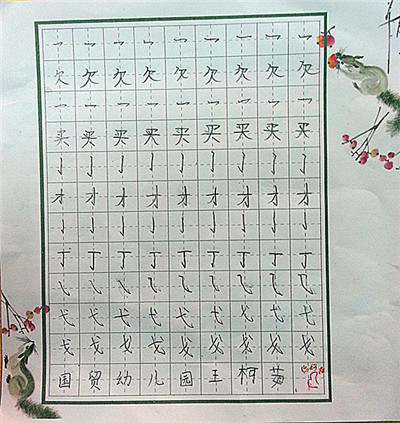 乛 乛 乛 乛 乛 乛 乛 乛 乛
欠 欠 欠 欠 欠 欠 欠 欠 欠
乛 乛 乛 乛 乛 乛 乛 乛 乛
买 买 买 买 买 买 买 买 买
亅 亅 亅 亅 亅 亅 亅 亅 亅
才 才 才 才 才 才 才 才 才
亅 亅 亅 亅 亅 亅 亅 亅 亅
丁 丁 丁 丁 丁 丁 丁 丁 丁
㇂ ㇂ ㇂ ㇂ ㇂ ㇂ ㇂ ㇂ ㇂
弋 弋 弋 弋 弋 弋 弋 弋 弋
戈 戈 戈 戈 戈 戈 戈 戈 戈
国 贸 幼 儿 园 王 柯 茹